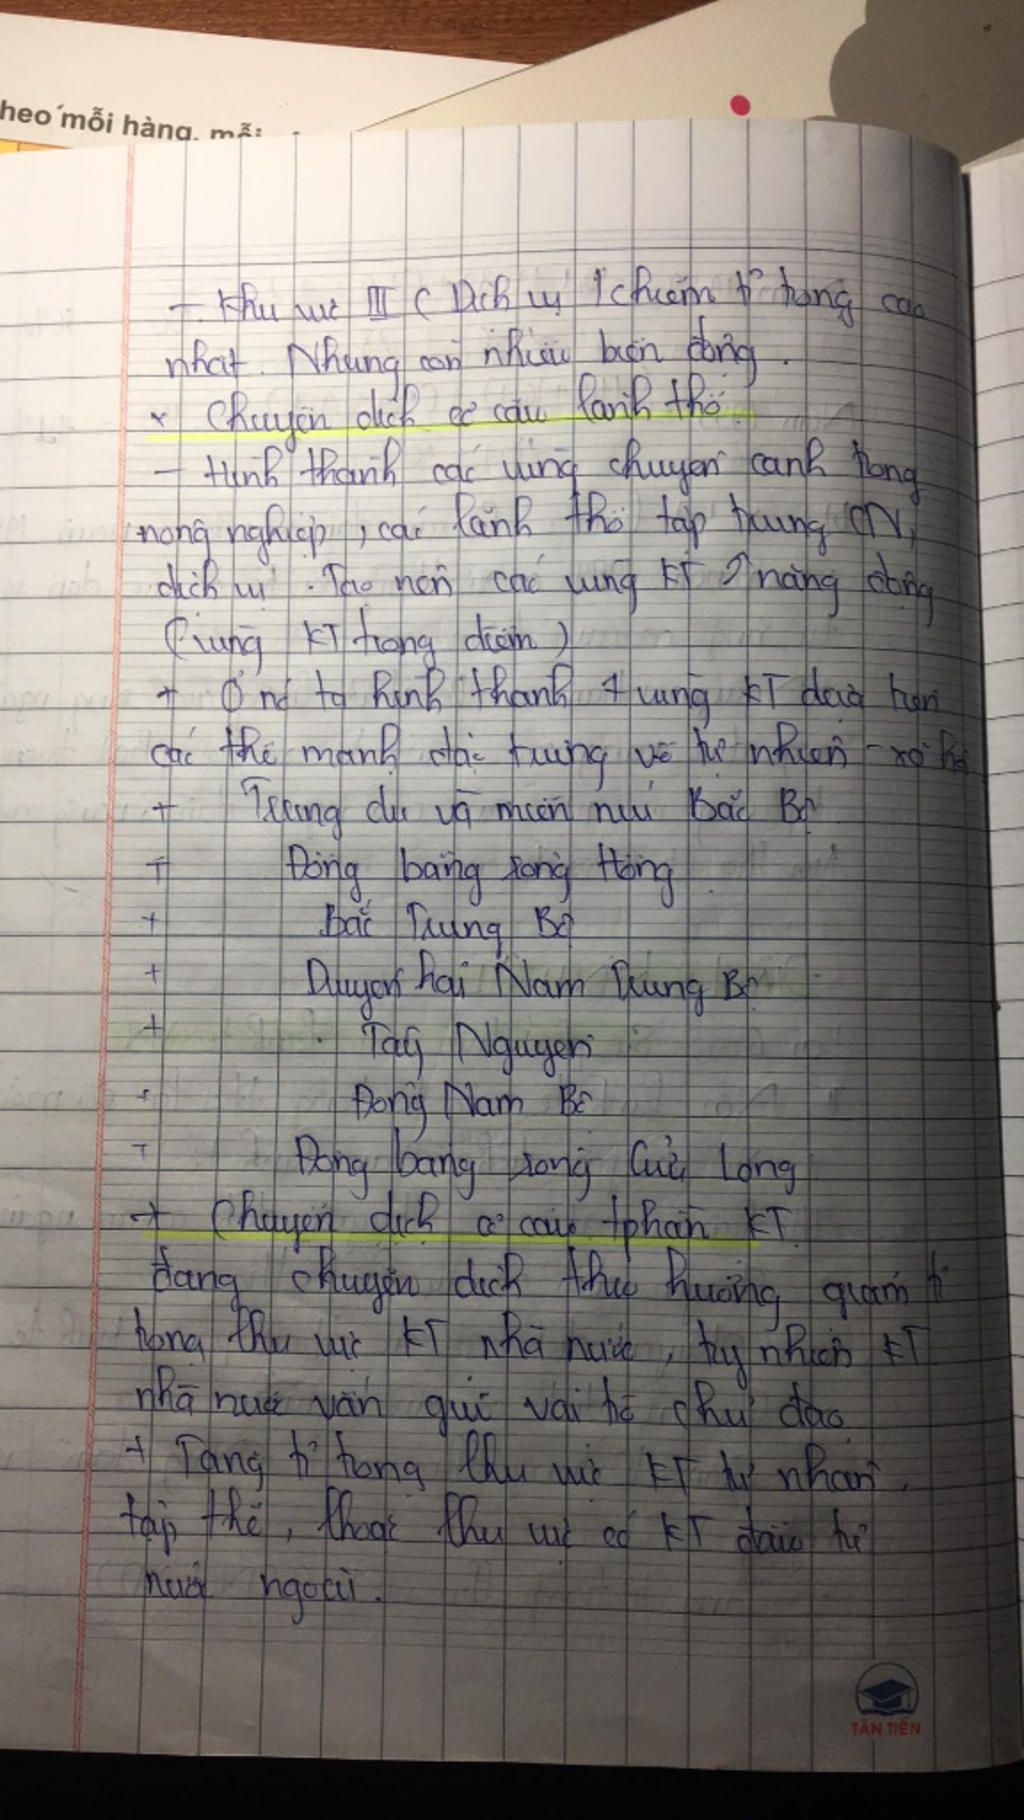 heo mỗi hàng, mỗi
- Khu vực III ( Dịch vụ ) chiếm tỉ trọng cao
nhất. Nhưng còn nhiều biến động.
* Chuyển dịch cơ cấu lãnh thổ
- Hình thành các vùng chuyên canh trong
nông nghiệp, các lãnh thổ tập trung CN,
dịch vụ. Tạo nên các vùng KT ↗ năng động
(vùng KT trọng điểm)
+ Ở nc ta hình thành 7 vùng KT dựa trên
các thế mạnh đặc trưng về tự nhiên - xã hội
+ Trung du và miền núi Bắc Bộ
+ Đồng bằng sông Hồng
+ Bắc Trung Bộ
+ Duyên hải Nam Trung Bộ
+ Tây Nguyên
+ Đông Nam Bộ
+ Đồng bằng sông Cửu Long
+ Chuyển dịch cơ cấu tphần KT
đang chuyển dịch theo hướng giảm tỉ
trọng khu vực KT nhà nước, tuy nhiên KT
nhà nước vẫn giữ vai trò chủ đạo
+ Tăng tỉ trọng khu vực KT tư nhân,
tập thể, khu vực có KT đầu tư
nước ngoài.
TÂN TIẾN